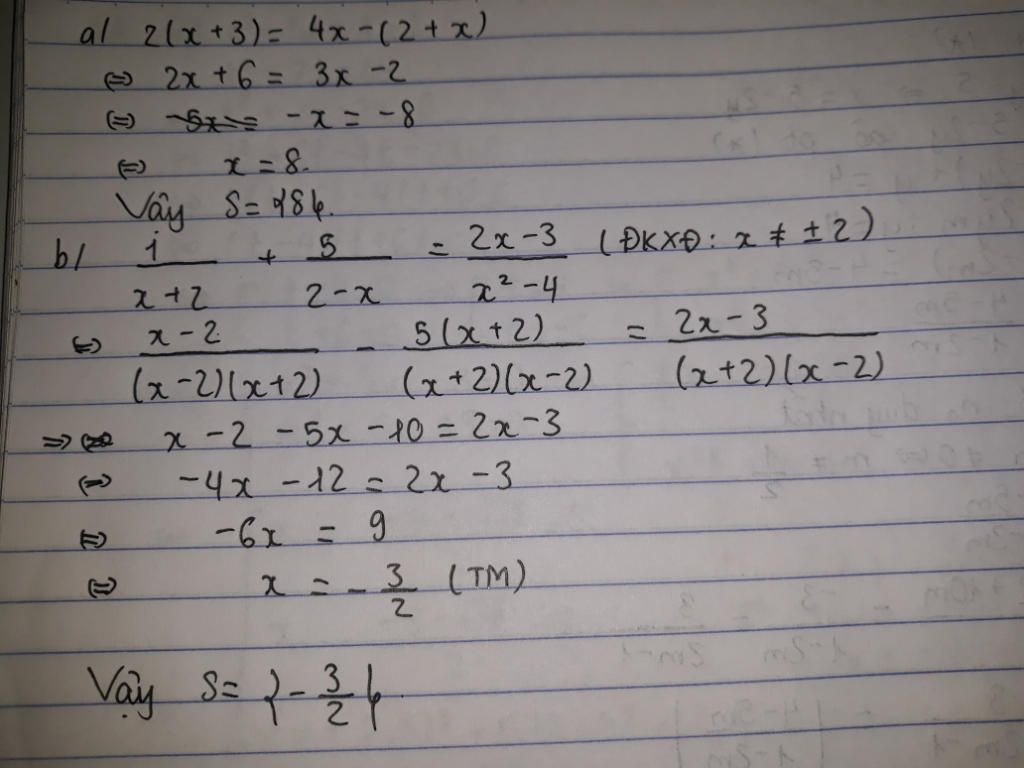 a/ 2(x+3) = 4x-(2+x)
⇔ 2x+6 = 3x-2
⇔ -x = -8
⇔ x = 8.
Vậy S={8}.
b/ 1/(x+2) + 5/(2-x) = (2x-3)/(x²-4) (ĐKXĐ: x ≠ ±2)
⇔ (x-2)/((x-2)(x+2)) - 5(x+2)/((x+2)(x-2)) = (2x-3)/((x+2)(x-2))
⇒ x-2-5x-10 = 2x-3
⇔ -4x-12 = 2x-3
⇔ -6x = 9
⇔ x = -3/2 (TM)
Vậy S={-3/2}.